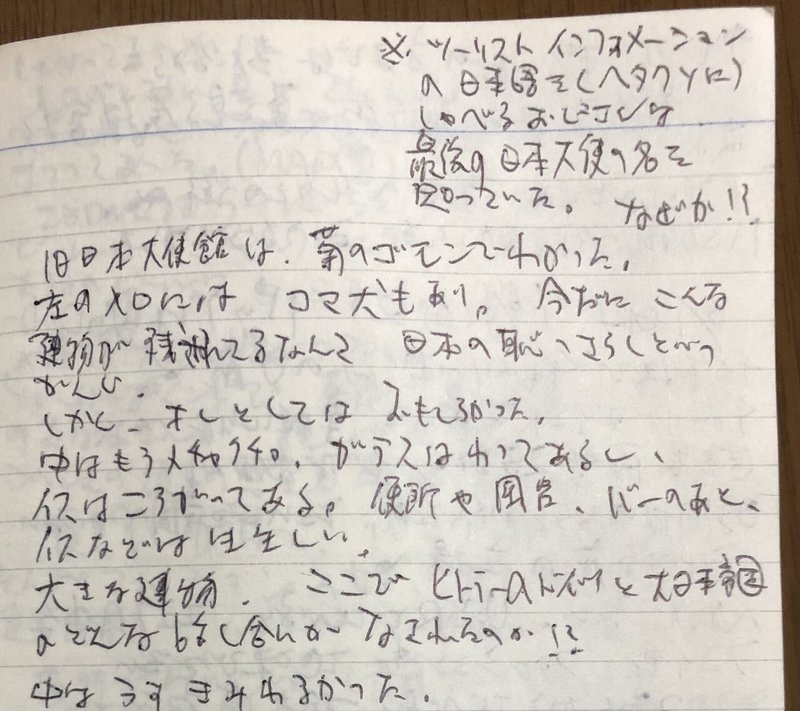 ※ ツーリスト インフォメーション
の 日本語を(ヘタクソに)
しゃべるおじさんは
最後の日本大使の名を
知っていた。 なぜか!?
旧日本大使館は、菊のゴモンでわかった。
左の入口には コマ犬もあり。 今だに こんな
建物が 残されてるなんて 日本の恥っさらしとかって
かんじ。
しかし、オレとしては おもしろかった。
中はもうメチャクチャ。ガラスはわってあるし、
イスはころがってある。 便所や 風呂、バーのあと、
イスなどは生生しい。
大きな建物。 ここで ヒトラーのドイツと大日本帝国
のどんな話し合いが なされたのか!?
中は うすきみわるかった。